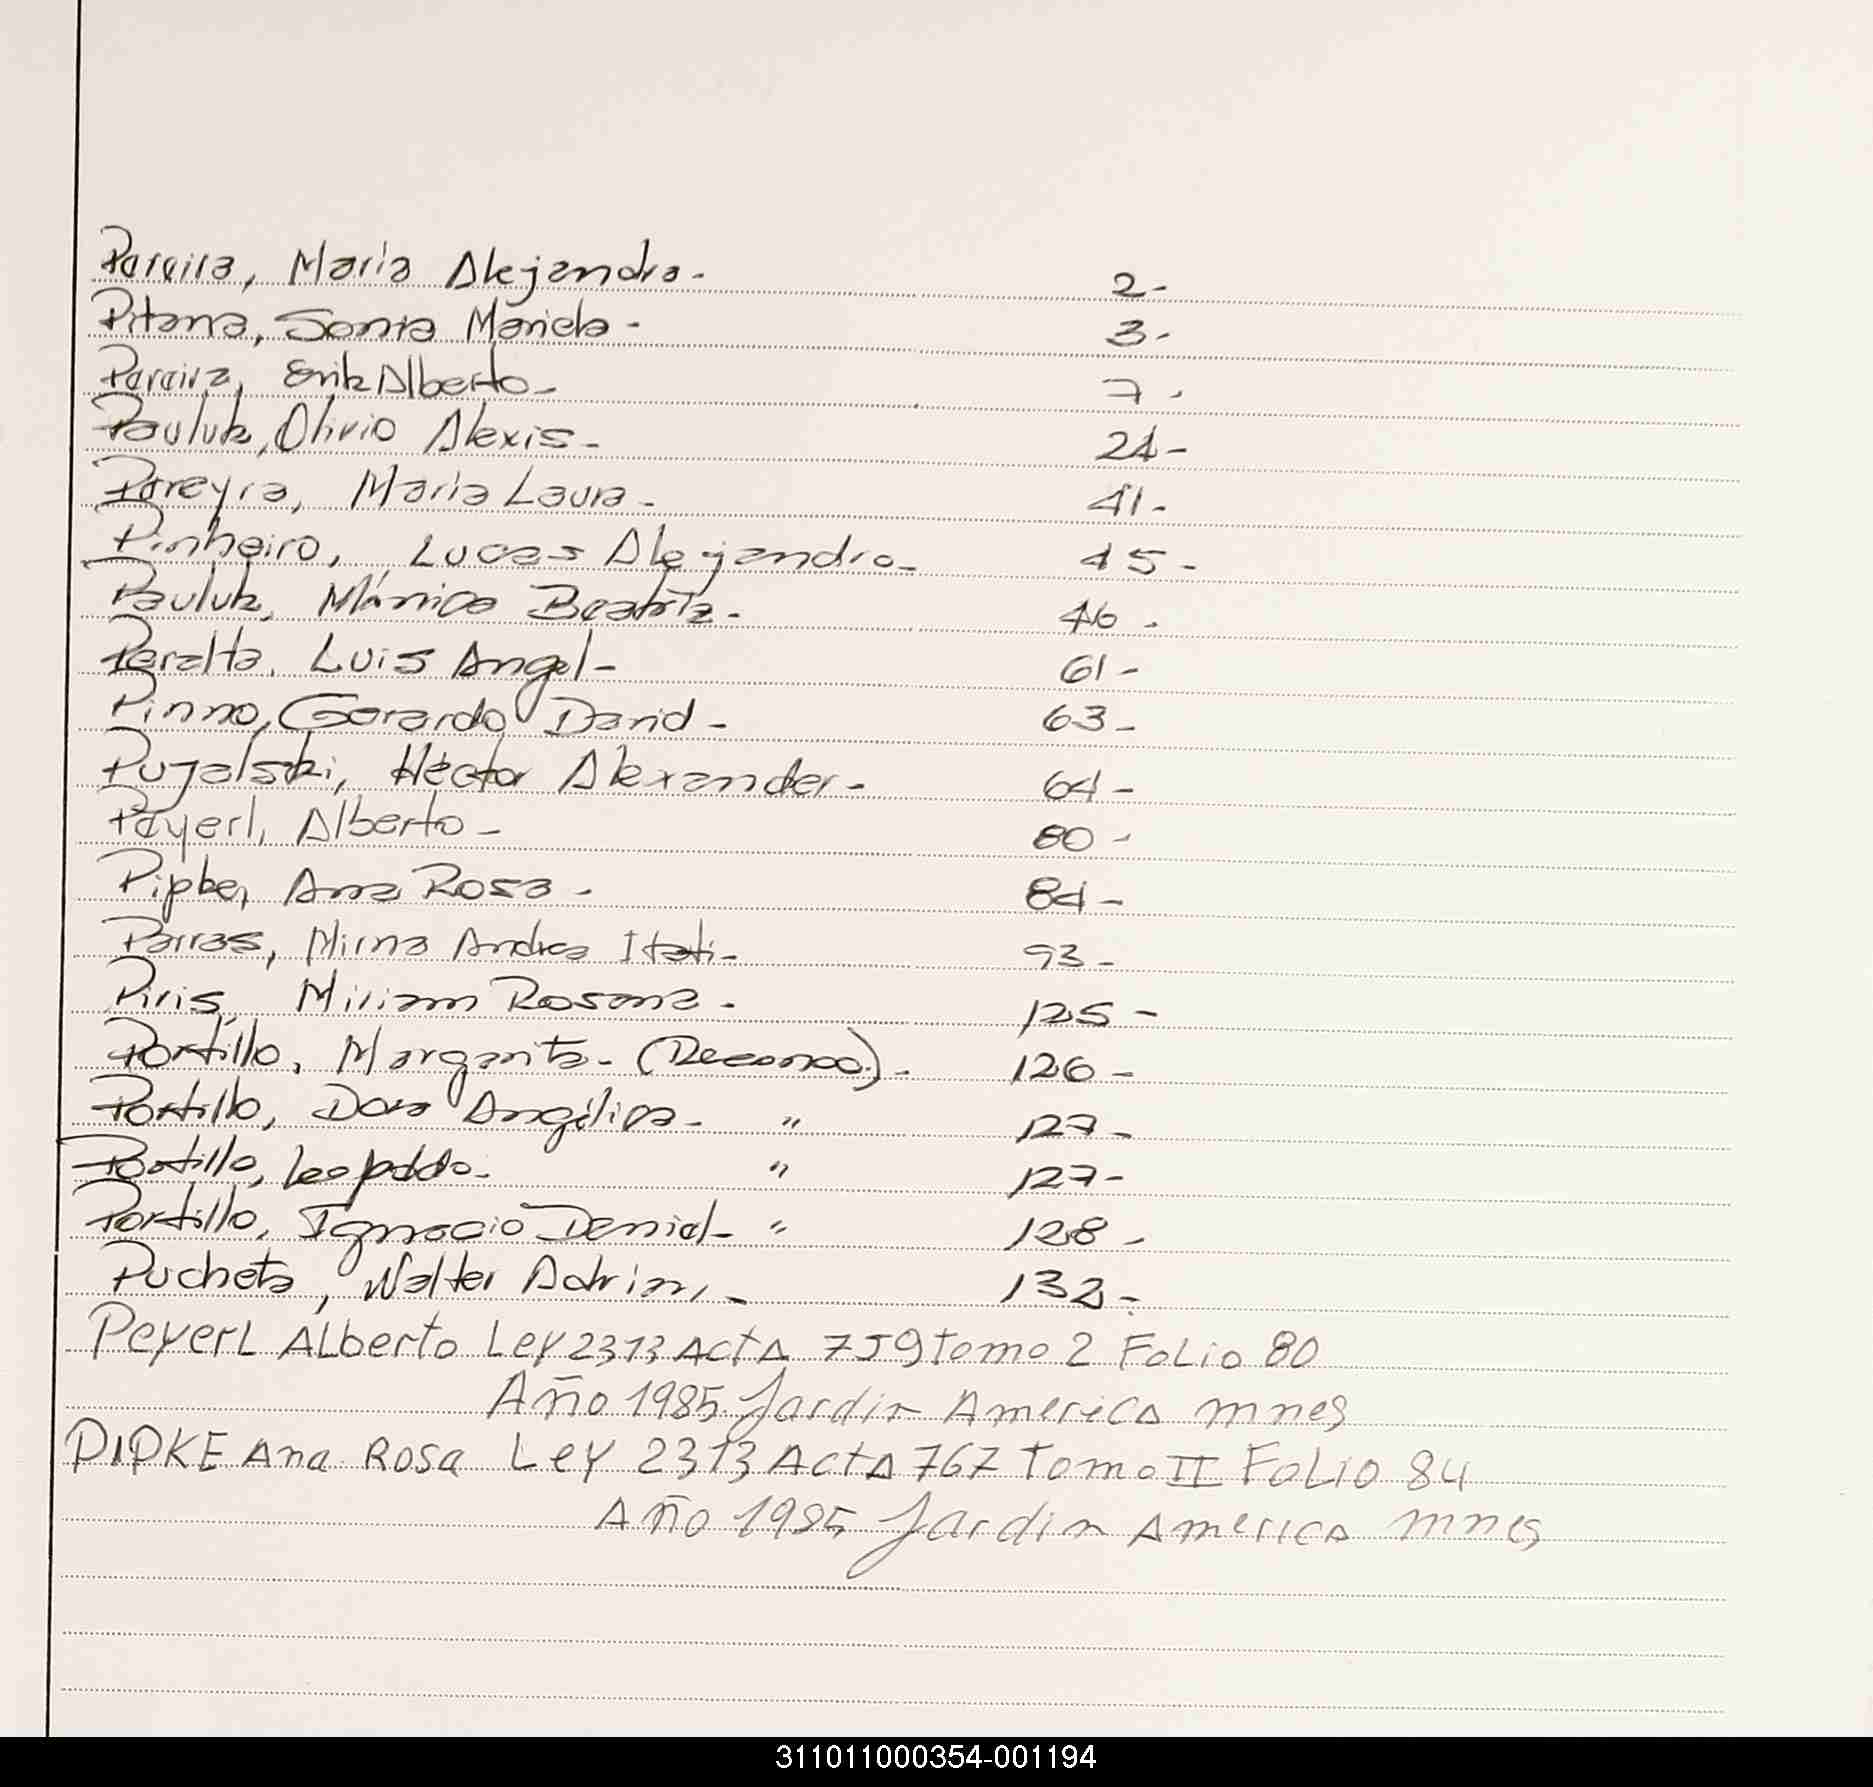 Pereira, María Alejandra. 2-
Pitana, Sonia Mariela - 3-
Pereira, Erik Alberto - 7-
Pauluk, Olivio Alexis - 24-
Pereyra, María Laura - 41-
Pinheiro, Lucas Alejandro - 45-
Pauluk, Mónica Beatriz - 46-
Peralta, Luis Angel - 61-
Pinno, Gerardo David - 63-
Pujalski, Héctor Alexander - 64-
Peyerl, Alberto - 80-
Pipke, Ana Rosa - 84-
Parras, Mirna Andrea Itati - 93-
Piris, Miriam Rosana - 125-
Portillo, Margarita - (Reconoc.) - 126-
Portillo, Dora Angélica - " 127-
Portillo, Leopoldo - " 127-
Portillo, Ignacio Daniel - " 128-
Pucheta, Walter Adrian, - 132-
Peyerl Alberto Ley 2313 Acta 759 tomo 2 Folio 80
Año 1985 Jardin America mnes
PIPKE Ana Rosa Ley 2313 Acta 767 Tomo II Folio 84
Año 1985 Jardin America mnes
311011000354-001194